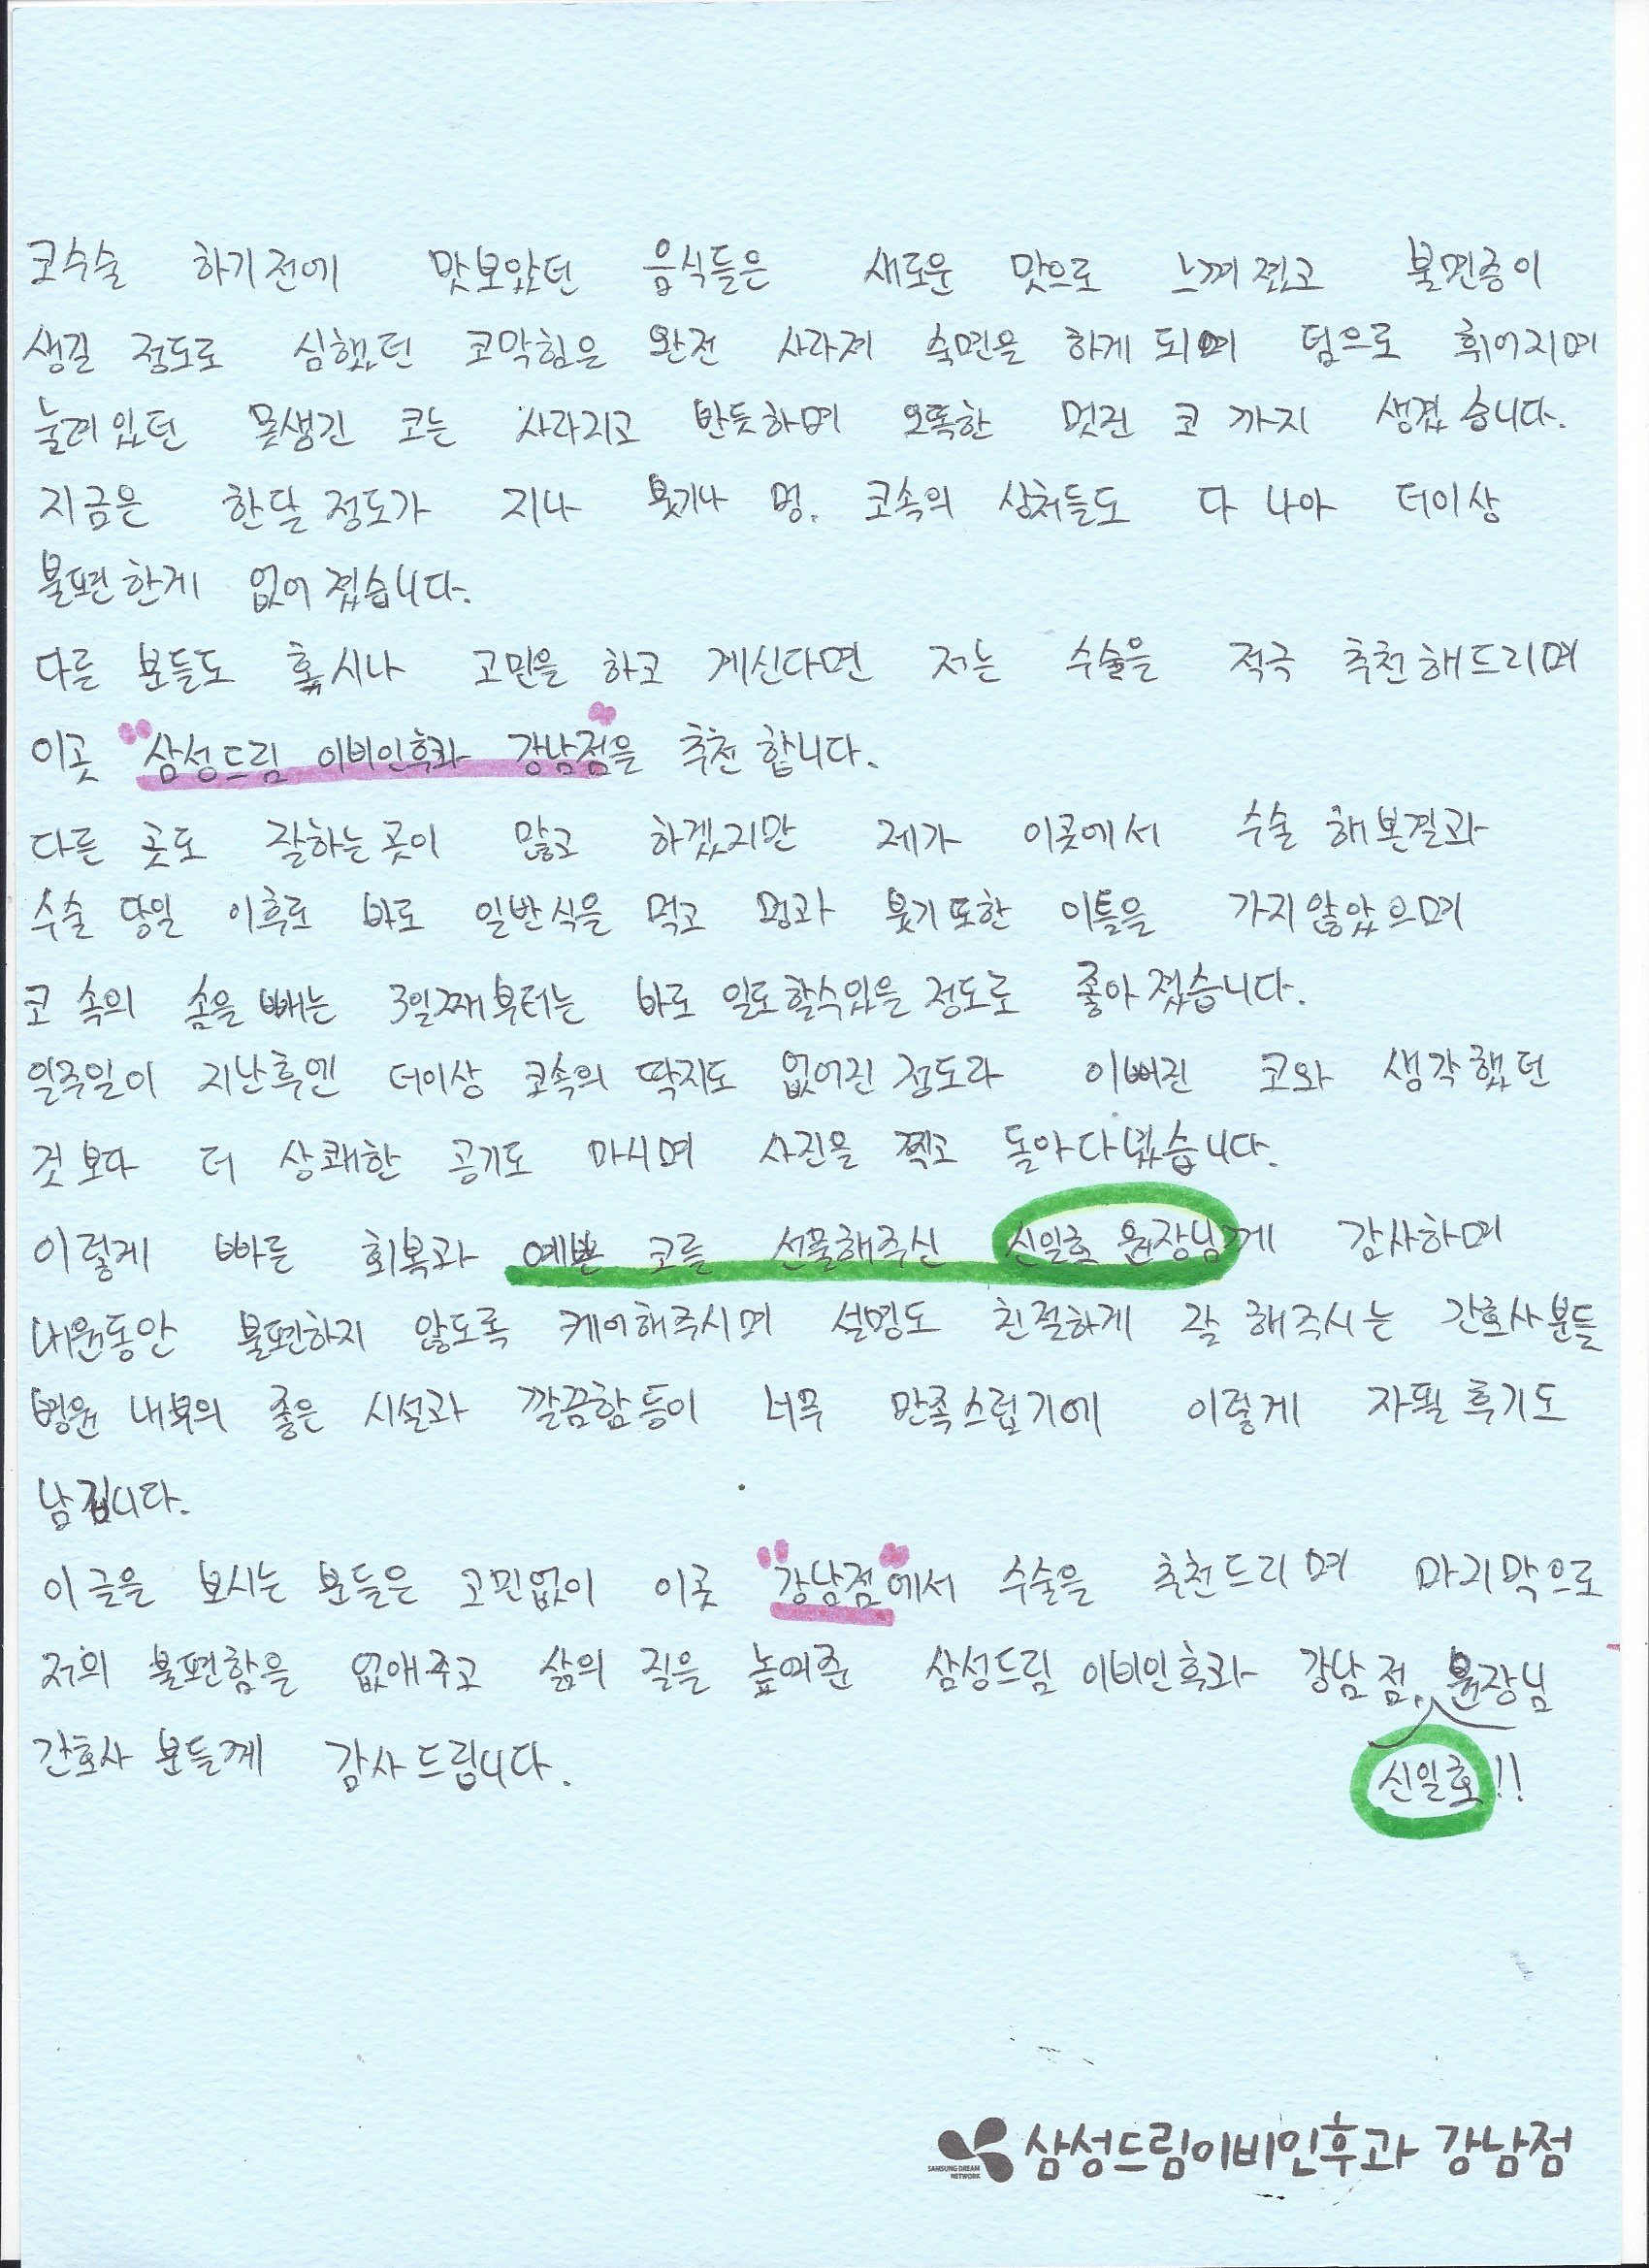 코수술 하기전에 맛보았던 음식들은 새로운 맛으로 느껴졌고 불면증이
생길 정도로 심했던 코막힘은 완전 사라져 숙면을 하게 되며 덤으로 휘어지며
눌려있던 못생긴 코는 사라지고 반듯하며 오똑한 멋진 코 까지 생겼습니다.
지금은 한달 정도가 지나 붓기나 멍, 코속의 상처들도 다 나아 더이상
불편한게 없어 졌습니다.
다른 분들도 혹시나 고민을 하고 계신다면 저는 수술을 적극 추천해드리며
이곳 "삼성드림 이비인후과 강남점"을 추천 합니다.
다른 곳도 잘하는곳이 많고 하겠지만 제가 이곳에서 수술 해본결과
수술 당일 이후로 바로 일반식을 먹고 멍과 붓기 또한 이틀을 가지않았으며
코 속의 솜을 빼는 3일째부터는 바로 일도할수있을 정도로 좋아 졌습니다.
일주일이 지난후엔 더이상 코속의 딱지도 없어진 정도라 이뻐진 코와 생각했던
것 보다 더 상쾌한 공기도 마시며 사진을 찍고 돌아다녔습니다.
이렇게 빠른 회복과 예쁜 코를 선물해주신 신일호 원장님께 감사하며
내원동안 불편하지 않도록 케어해주시며 설명도 친절하게 잘 해주시는 간호사분들
병원 내부의 좋은 시설과 깔끔함 등이 너무 만족스럽기에 이렇게 자필 후기도
남깁니다.
이 글을 보시는 분들은 고민없이 이곳 "강남점"에서 수술을 추천드리며 마지막으로
저의 불편함을 없애주고 삶의 질을 높여준 삼성드림 이비인후과 강남점, 원장님
간호사 분들께 감사드립니다. 신일호!!
SAMSUNG DREAM
NETWORK
삼성드림이비인후과 강남점